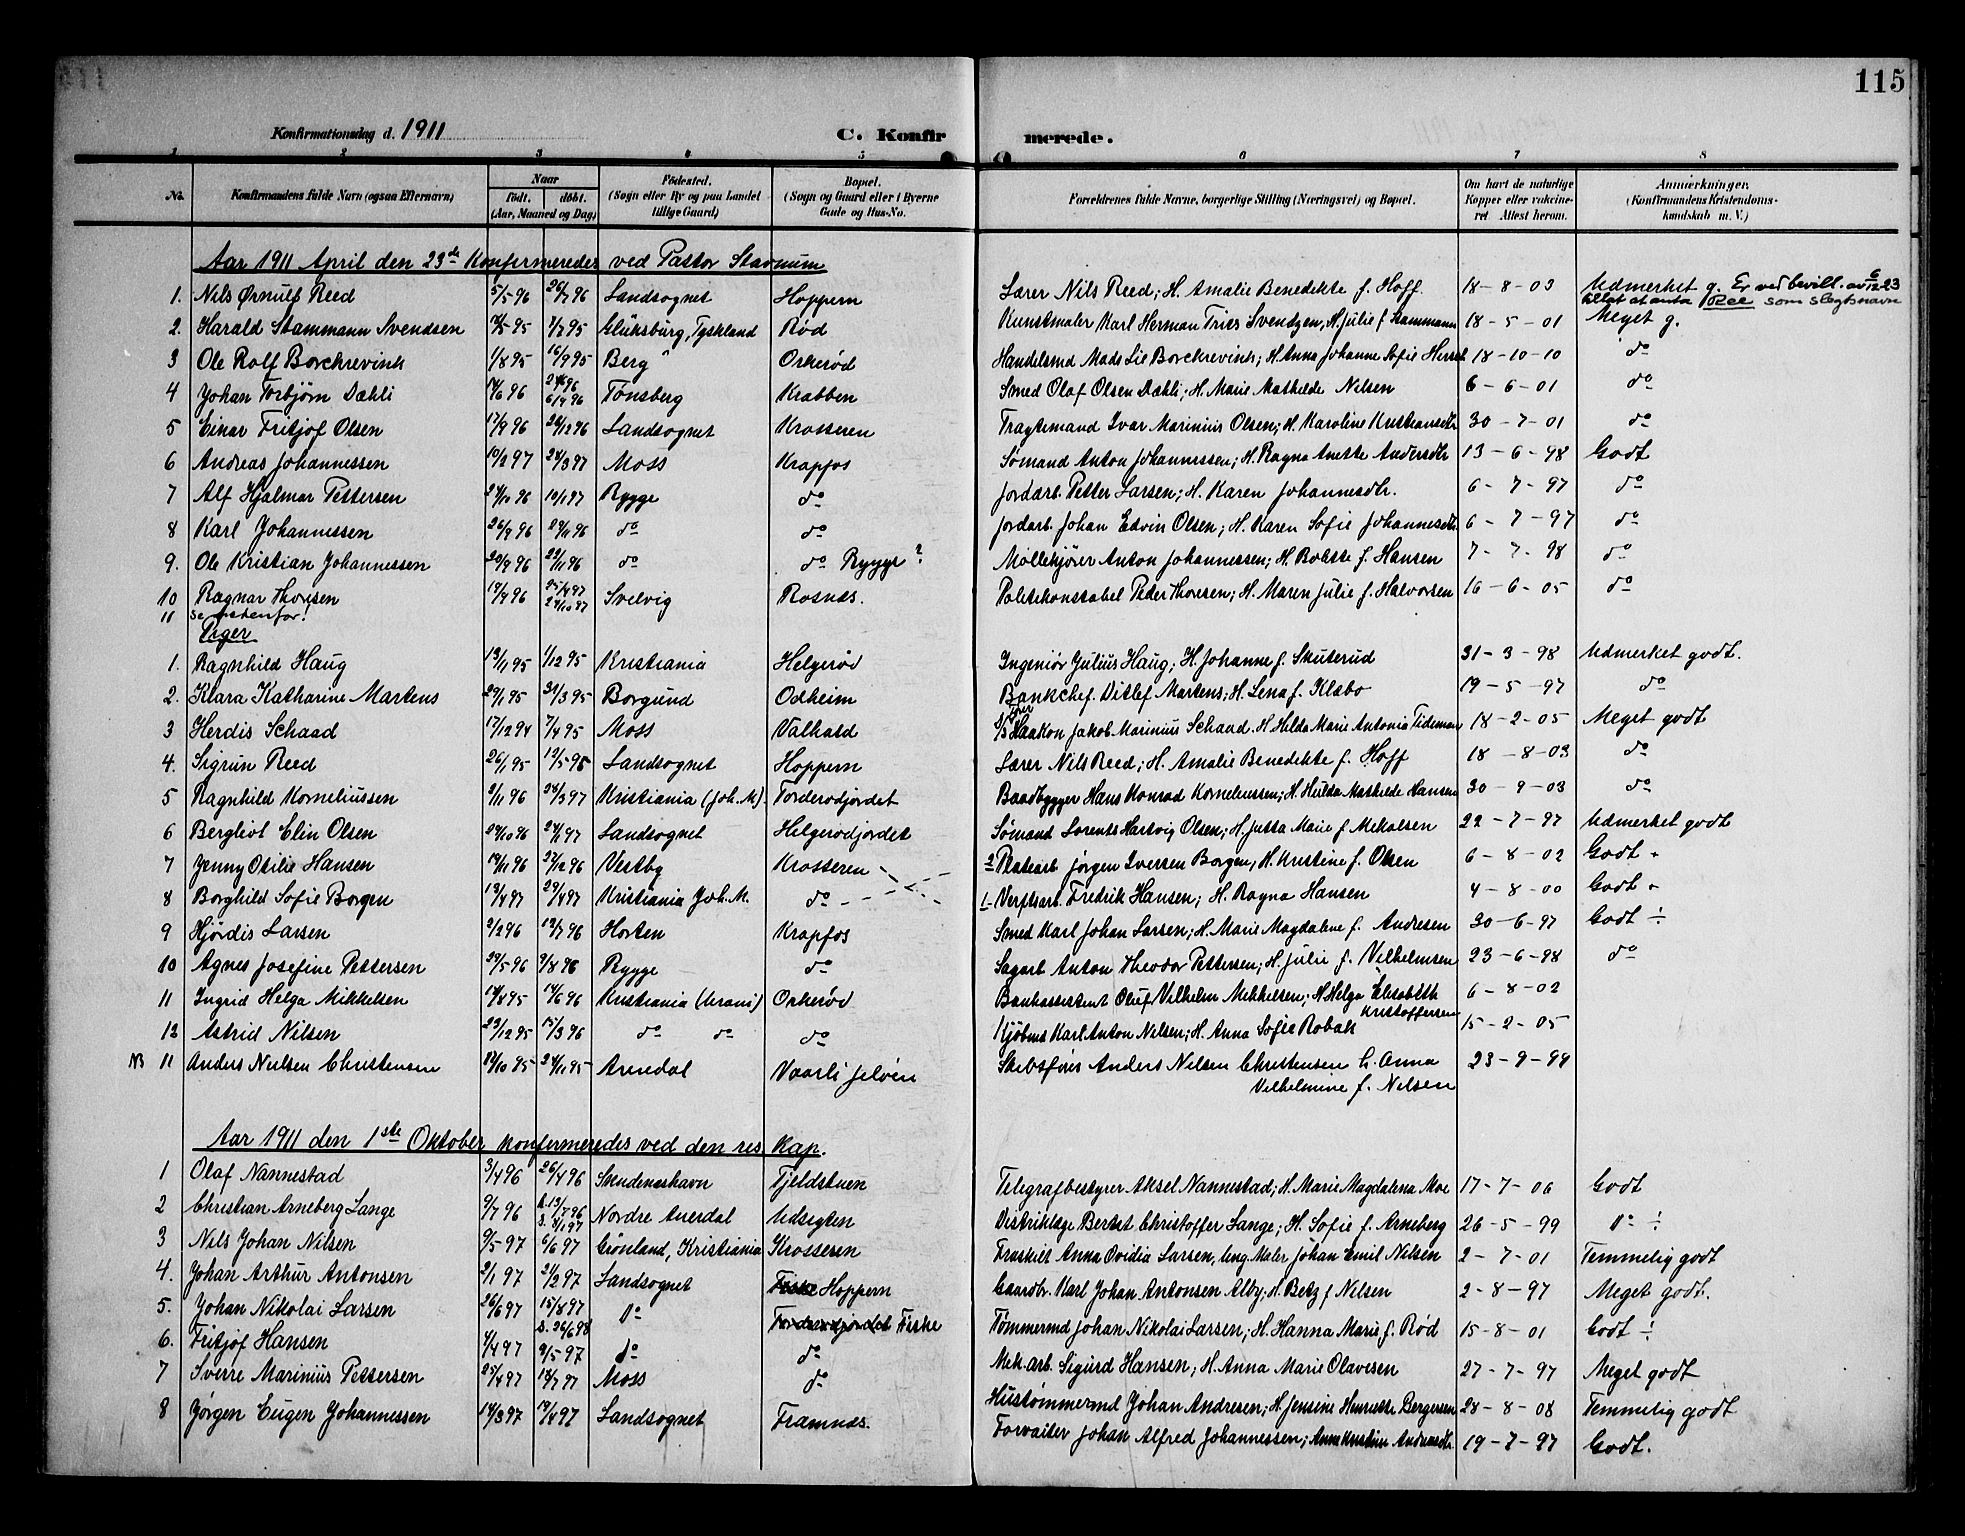 115
Konfirmationsdag d. 1911
C. Konfirmerede.
1 2 3 4 5 6 7 8
No. Konfirmandens fulde Navn (ogsaa Efternavn) Naar født. døbt. (Aar, Maaned og Dag) Fødested. (Sogn eller By og paa Landet tillige Gaard) Bopæl. (Sogn og Gaard eller i Byerne Gade og Hus-No. Forældrenes fulde Navne, borgerlige Stilling (Næringsvei) og Bopæl. Om havt de naturlige Kopper eller vakcineret Attest herom. Anmærkninger. (Konfirmandens Kristendomskundskab m. V.)
Aar 1911 April den 23de Konfirmeredes ved Pastor Stavnum
1. Nils Ørnulf Reed 5/5 96 26/7 96 Landsognet Hoppern Lærer Nils Reed; H. Amalie Benedekte f. Hoff 18-8-03 Udmerket g. Er ved bevill. av 6/12 23 tillat at anta som slegtsnavn
2. Harald Stammann Svendsen 95 7/7 95 Glüksburg, Tyskland Rød Kunstmaler Karl Herman Fries Svendsen, H. Julie f Stammann 18-5-01 Meget g.
3 Ole Rolf Borckrevink 1/8 95 15/9 95 Berg Orkerød Handelsmd Mads Lie Borckrevink; H. Anna Johanne Sofie 18-10-10 do
4 Johan Torbjørn Dæhli 14/6 96 96 6/9 96 Tønsberg Krabben Smed Olaf Olsen Dæhli; H. Marie Mathilde Nilsen 6-6-01 do
5 Einar Fritjof Olsen 17/9 96 26/12 96 Landsognet Krosseren Fragtemand Ivar Marinius Olsen; H. Karoline Kristiansdtr 30-7-01 do
6 Andreas Johannessen 10/2 97 28/3 97 Moss Krapfos Sømand Anton Johannessen; H. Ragna Anette Andersdtr 13-6-98 Godt
7 Alf Hjalmar Pettersen 24/10 96 10/1 97 Rygge do Jordarb. Petter Larsen; H. Karen Johannesdtr. 6-7-97 do
8 Karl Johannessen 26/9 96 29/11 96 do do Jordarb. Johan Edvin Olsen; H. Karen Sofie Johannesdtr 6-7-97 do
9. Ole Kristian Johannessen 20/9 96 22/11 96 do do Rygge? Møllekjører Anton Johannessen; H. Bolette f. Hansen 7-7-98 do
10 Ragnar Thoresen 19/9 96 25/4 97 24/10 97 Svelvig Rosnæs. Politikonstabel Peder Thoresen; H. Maren Julie f. Halvorsen 16-6-05 do
11 se nedenfor!
Piger
1. Ragnhild Haug 13/11 95 1/12 95 Kristiania Helgerød Ingeniør Julius Haug; H. Johanne f. Skuterud 31-3-98 Udmerket godt.
2. Klara Katharine Martens 29/1 95 31/3 95 Borgund Odheim Bankchef. Ditlef Martens; H. Lena f. Klabo 19-5-97 do
3 Herdis Schaad 17/12 94 7/4 95 Moss Valhald Haakon Jakob Marinius Schaad. H Hilda Marie Antonia Tideman 18-2-05 Meget godt
4. Sigrun Reed 26/1 95 12/5 95 Landsognet Hoppern Lærer Nils Reed; H. Amalie Benedekte f. Hoff 18-8-03 do
5 Ragnhild Korneliussen 2/11 96 28/3 97 Kristiania (Joh. M). Torderødjordet Baadbygger Hans Konrad Korneliussen; H. Hulda Mathilde Hansen 30-9-03 do
6 Bergliot Elin Olsen 29/10 96 24/1 97 Landsognet Helgerødjordet Sømand Lorents Hartvig Olsen; H. Jutta Marie f. Mikalsen 22-7-97 Udmerket godt
7 Jenny Otilie Hansen 19/11 96 27/12 96 Vestby Krosseren 2 Platearb. Jørgen Iversen Borgen; H. Kristine f. Olsen 6-8-02 Godt -
8 Borghild Sofie Borgen 13/4 97 29/4 97 Kristiania Joh. M. do 1 Verftsarb. Fredrik Hansen; H. Ragna Hansen 4-8-00 Godt -
9 Hjørdis Larsen 2/2 96 12/7 96 Horten Krapfos Smed Karl Johan Larsen; H. Marie Magdalene f. Andresen 30-6-97 Godt ÷
10 Agnes Josefine Pettersen 29/5 96 9/8 96 Rygge do Sagarb. Anton Theodor Pettersen; H. Julie f. Vilhelmsen 23-6-98 do
11 Ingrid Helga Mikkelsen 95 14/6 96 Kristiania (Urani) Orkerød Bankassistent Oluf Vilhelm Mikkelsen; H Helga Elisabeth Kristoffersen 6-8-02
12 Astrid Nilsen 23/12 95 15/3 96 do do do Kjøbmd Karl Anton Nilsen; H. Anna Sofie Robak 15-2-05
NB 11 Anders Neilsen Christensen 12/10 95 24/11 95 Arendal Vaarli Jeløen Skibsfører Anders Nilsen Christensen h. Anna Vilhelmine f. Nilsen 23-9-99
Aar 1911 den 1ste Oktober konfirmeredes ved den res. Kap.
1 Olaf Nannestad 3/4 96 26/4 96 Skudeneshavn Fjeldstuen Telegrafbestyrer Aksel Nannestad; H. Marie Magdalena Moe 17-7-06 Godt
2 Christian Arneberg Lange 9/7 96 h. 13/7 96 d. 3/1 97 Nordre Aurdal Udsigten Distriktslæge Bertet Christoffer Lange; H. Sofie f. Arneberg 26-5-99 do ÷
3 Nils Johan Nilsen 9/5 97 6/6 97 Grønland, Kristiania Krosseren Fraskilt Anna Ovidia Larsen, ung. Maler Johan Emil Nilsen 2-7-01 Temmelig godt
4. Johan Arthur Antonsen 2/1 97 21/2 97 Landsognet Fiske Hoppern Gaardbr. Karl Johan Antonsen Alby; H. Betzy f Nilsen 2-8-97 Meget godt.
5. Johan Nikolai Larsen 26/6 97 15/8 97 do Torderødjordet Fiske Tømmermd Johan Nikolai Larsen; H. Hanna Marie f. Rød 15-8-01 Godt ÷
6. Fritjof Hansen 4/4 97 d. 26/6 98 9/5 97 do do Mek. arb. Sigurd Hansen; H. Anna Marie Olavesen 27-7-97 Meget godt
7 Sverre Marinius Pettersen 25/4 97 18/7 97 Moss do Hustømmermd Johan Andresen; H. Jensine Henriette Bergersen 28-8-08 Temmelig godt
8 Jørgen Eugen Johannessen 14/3 97 19/4 97 Landsognet Framnæs. Forvalter Johan Alfred Johannessen; Anne Kristine Andreasdtr. 19-7-97 Godt.